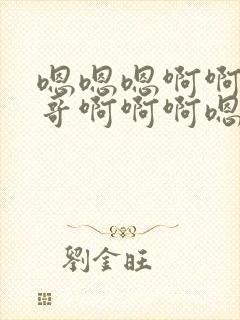 嗯嗯嗯啊啊
哥啊啊啊嗯
劉金旺